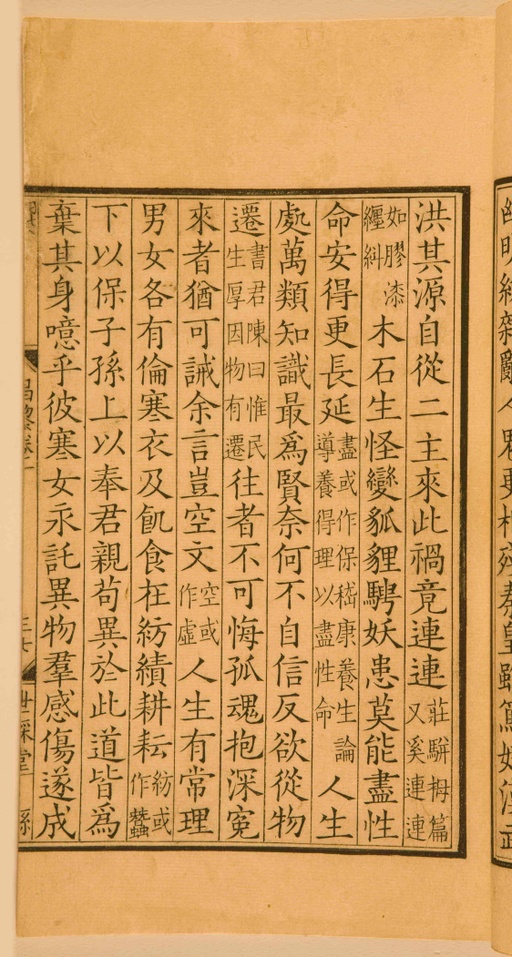 幽明紛雜亂人鬼更相殘秦皇雖篤好漢武
洪其源自從二主來此禍竟連連莊駢拇篇又奚連連
如膠漆纏糾木石生怪變狐貍騁妖患莫能盡性
命安得更長延盡或作保嵇康養生論導養得理以盡性命人生
處萬類知識最爲賢奈何不自信反欲從物
遷書君陳曰惟民生厚因物有遷往者不可悔孤魂抱深寃
來者猶可誡余言豈空文空或作虛人生有常理
男女各有倫寒衣及飢食在紡績耕耘紡或作蠶
下以保子孫上以奉君親苟異於此道皆爲
棄其身噫乎彼寒女永託異物羣感傷遂成
昌黎卷一
世綵堂